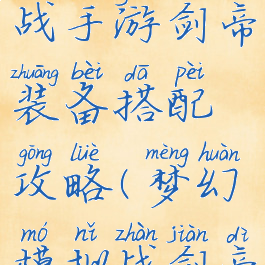 战手游剑帝
zhuāng bèi dā pèi
装备搭配
gōng lüè mèng huàn
攻略(梦幻
mó nǐ zhàn jiàn dì
模拟战剑帝